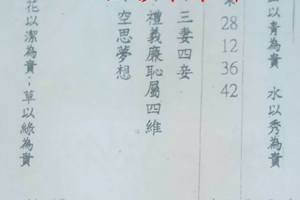 以青為貴　水以秀為貴
28
12
36
42
三妻四妾
禮義廉恥屬四維
空思夢想
花以潔為貴，草以綠為貴